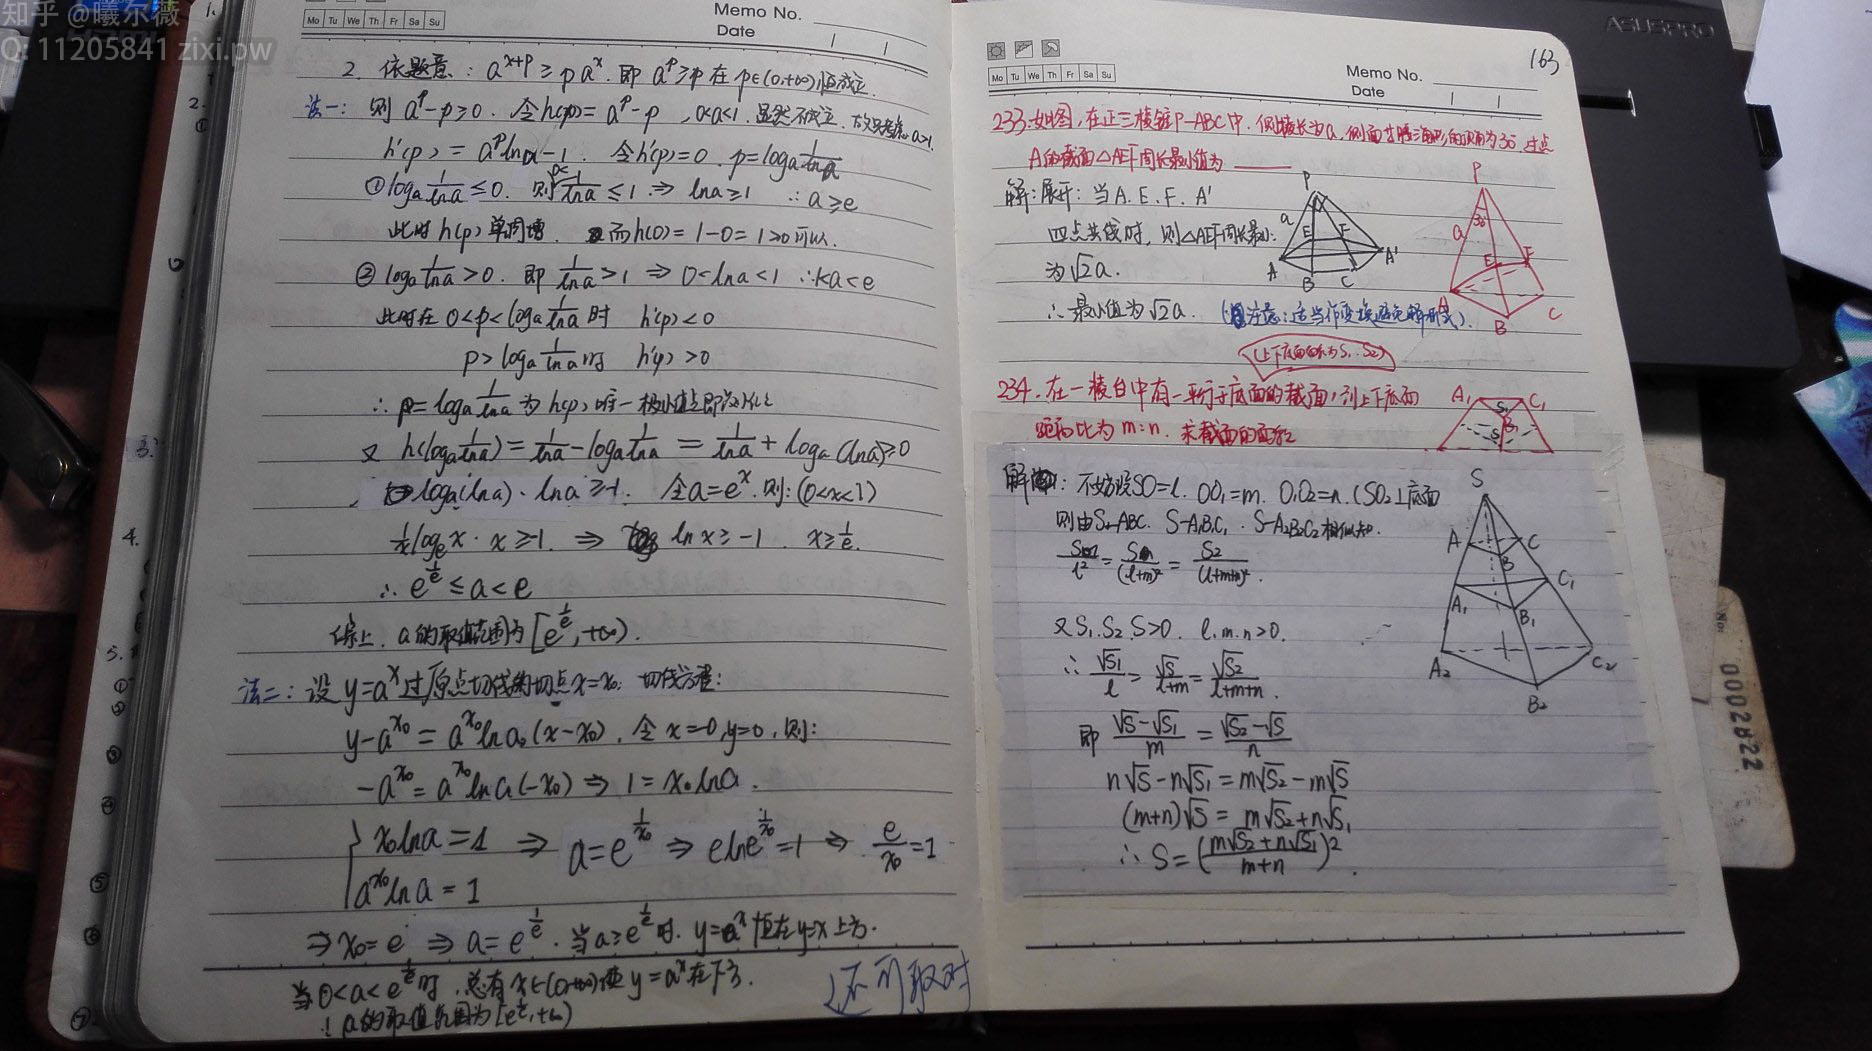 知乎 @曦尔薇
Q: 11205841 zixi.pw
Mo Tu We Th Fr Sa Su
Memo No.
Date
2. 依题意: a^{x+p} ≥ p a^x. 即 a^p ≥ p 在 p∈(0,+∞)恒成立.
法一: 则 a^p-p≥0. 令 h(p) = a^p-p, 0<a<1. 显然不成立. 故只考虑 a>1.
h'(p) = a^p lna-1. 令 h'(p)=0. p=log_a 1/lna
① log_a 1/lna ≤ 0. 则 0< 1/lna ≤ 1 ⇒ lna≥1 ∴ a≥e
此时 h(p) 单调增. 而 h(0) = 1-0 = 1>0 可以.
② log_a 1/lna > 0. 即 1/lna > 1 ⇒ 0<lna<1 ∴ 1<a<e
此时在 0<p<log_a 1/lna 时 h'(p)<0
p>log_a 1/lna 时 h'(p)>0
∴ p=log_a 1/lna 为 h(p) 唯一极小值点即
又 h(log_a 1/lna) = 1/lna - log_a 1/lna = 1/lna + log_a(lna) ≥0
log_a(lna)·lna≥-1. 令 a=e^x. 则: (0<x<1)
1/x log_e x · x ≥-1. ⇒ ln x ≥ -1. x≥1/e.
∴ e^{1/e} ≤ a < e
综上. a的取值范围为 [e^{1/e}, +∞).
法二: 设 y=a^x 过原点切线的切点 x=x₀. 切线方程:
y-a^{x₀} = a^{x₀} lna.(x-x₀). 令 x=0,y=0, 则:
-a^{x₀} = a^{x₀} lna(-x₀) ⇒ 1=x₀lna.
{ x₀lna=1
a^{x₀}lna=1 ⇒ a=e^{1/x₀} ⇒ e ln e^{1/x₀}=1 ⇒ e/x₀=1
⇒ x₀=e ⇒ a=e^{1/e}. 当 a≥e^{1/e} 时. y=a^x 恒在 y=x 上方.
当 0<a<e^{1/e} 时. 总有 x∈(0,+∞)使 y=a^x 在下方.
∴ a的取值范围为 [e^{1/e},+∞)
还可取对
163
Mo Tu We Th Fr Sa Su
Memo No.
Date
233. 如图, 在正三棱锥 P-ABC 中. 侧棱长为 a. 侧面等腰三角形的顶角为 30°. 过点
A的截面 △AEF 周长最小值为
解: 展开: 当 A. E. F. A'
四点共线时, 则 △AEF 周长最小.
为 √2a.
∴ 最小值为 √2a. (注意: 适当作变换避免解
P
a
E
F
A
B
C
A'
P
30°
a
E
F
A
B
C
(上下底面面积为 S₁. S₂)
234. 在一棱台中有一平行于底面的截面, 到上下底面
距离比为 m:n. 求截面的面积
A₁
S₁
C₁
B₁
S
解: 不妨设 SO=l. OO₁=m. O₁O₂=n. (SO₂⊥底面
则由 S-ABC. S-A₁B₁C₁. S-A₂B₂C₂ 相似知.
S₁/l² = S/(l+m)² = S₂/(l+m+n)².
又 S₁. S₂. S>0. l. m. n>0.
∴ √S₁/l = √S/(l+m) = √S₂/(l+m+n).
即 (√S-√S₁)/m = (√S₂-√S)/n
n√S - n√S₁ = m√S₂ - m√S
(m+n)√S = m√S₂ + n√S₁
∴ S = ((m√S₂+n√S₁)/(m+n))².
S
A
C
B
A₁
C₁
B₁
A₂
C₂
B₂
ASUSPRO
No:
0002822